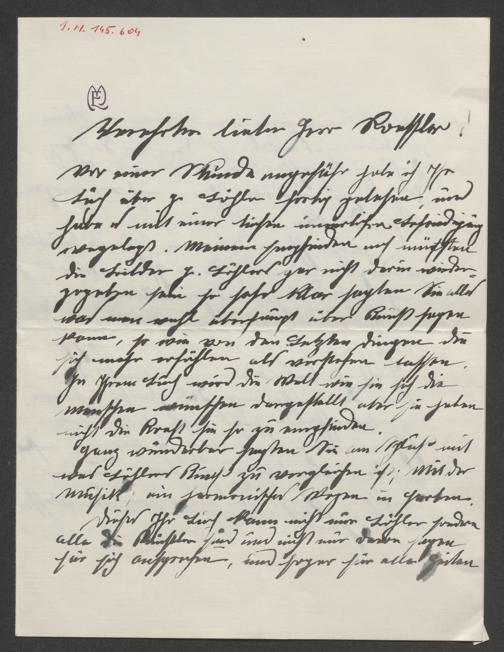 I.N. 145.604
Verehrter lieber Herr Roessler!
Vor einer Stunde ungefähr habe ich Ihr
Buch über G. Köhler fertig gelesen, und
habe es mit einer tiefen innerlichen Befriedigung
weggelegt. Meinem Empfinden nach müssten
die Bilder G. Köhlers gar nicht darin wieder-
gegeben sein so sehr klar sagten Sie alles
was man wohl überhaupt über Kunst sagen
kann, so wie von den letzten Dingen die
sich mehr erfühlen als verstehen lassen.
In Ihrem Buch wird die Welt wie sie sich die
Menschen wünschen dargestellt aber sie haben
nicht die Kraft sie so zu empfinden.
Ganz wunderbar sagten Sie am mit
was Köhlers Kunst zu vergleichen ist; mit der
Musik, ein harmonisches Wogen in Farben.
Dieses Ihr Buch kann nicht nur Köhler sondern
alle die Künstler sind und nicht nur davon sagen
für sich ansprechen, und sogar für alle Zeiten